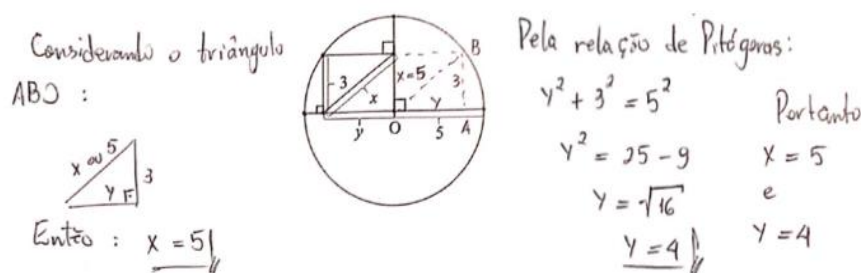 Considerando o triângulo
ABO :
x ou 5
3
y
Então : x = 5
3
x
x=5
B
3
y
y
O
5
A
Pela relação de Pitágoras:
y² + 3² = 5²
y² = 25 - 9
y = √16
y = 4
Portanto
x = 5
e
y = 4